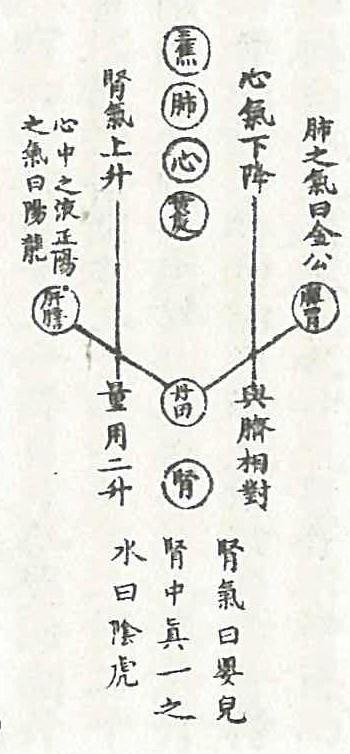 肺之氣曰金公
脾胃
心氣下降
與臍相對
三焦
肺
心
丹田
腎
腎氣上升
量用二升
心中之液正陽
之氣曰陽龍
肝膽
腎氣曰嬰兒
腎中眞一之
水曰陰虎